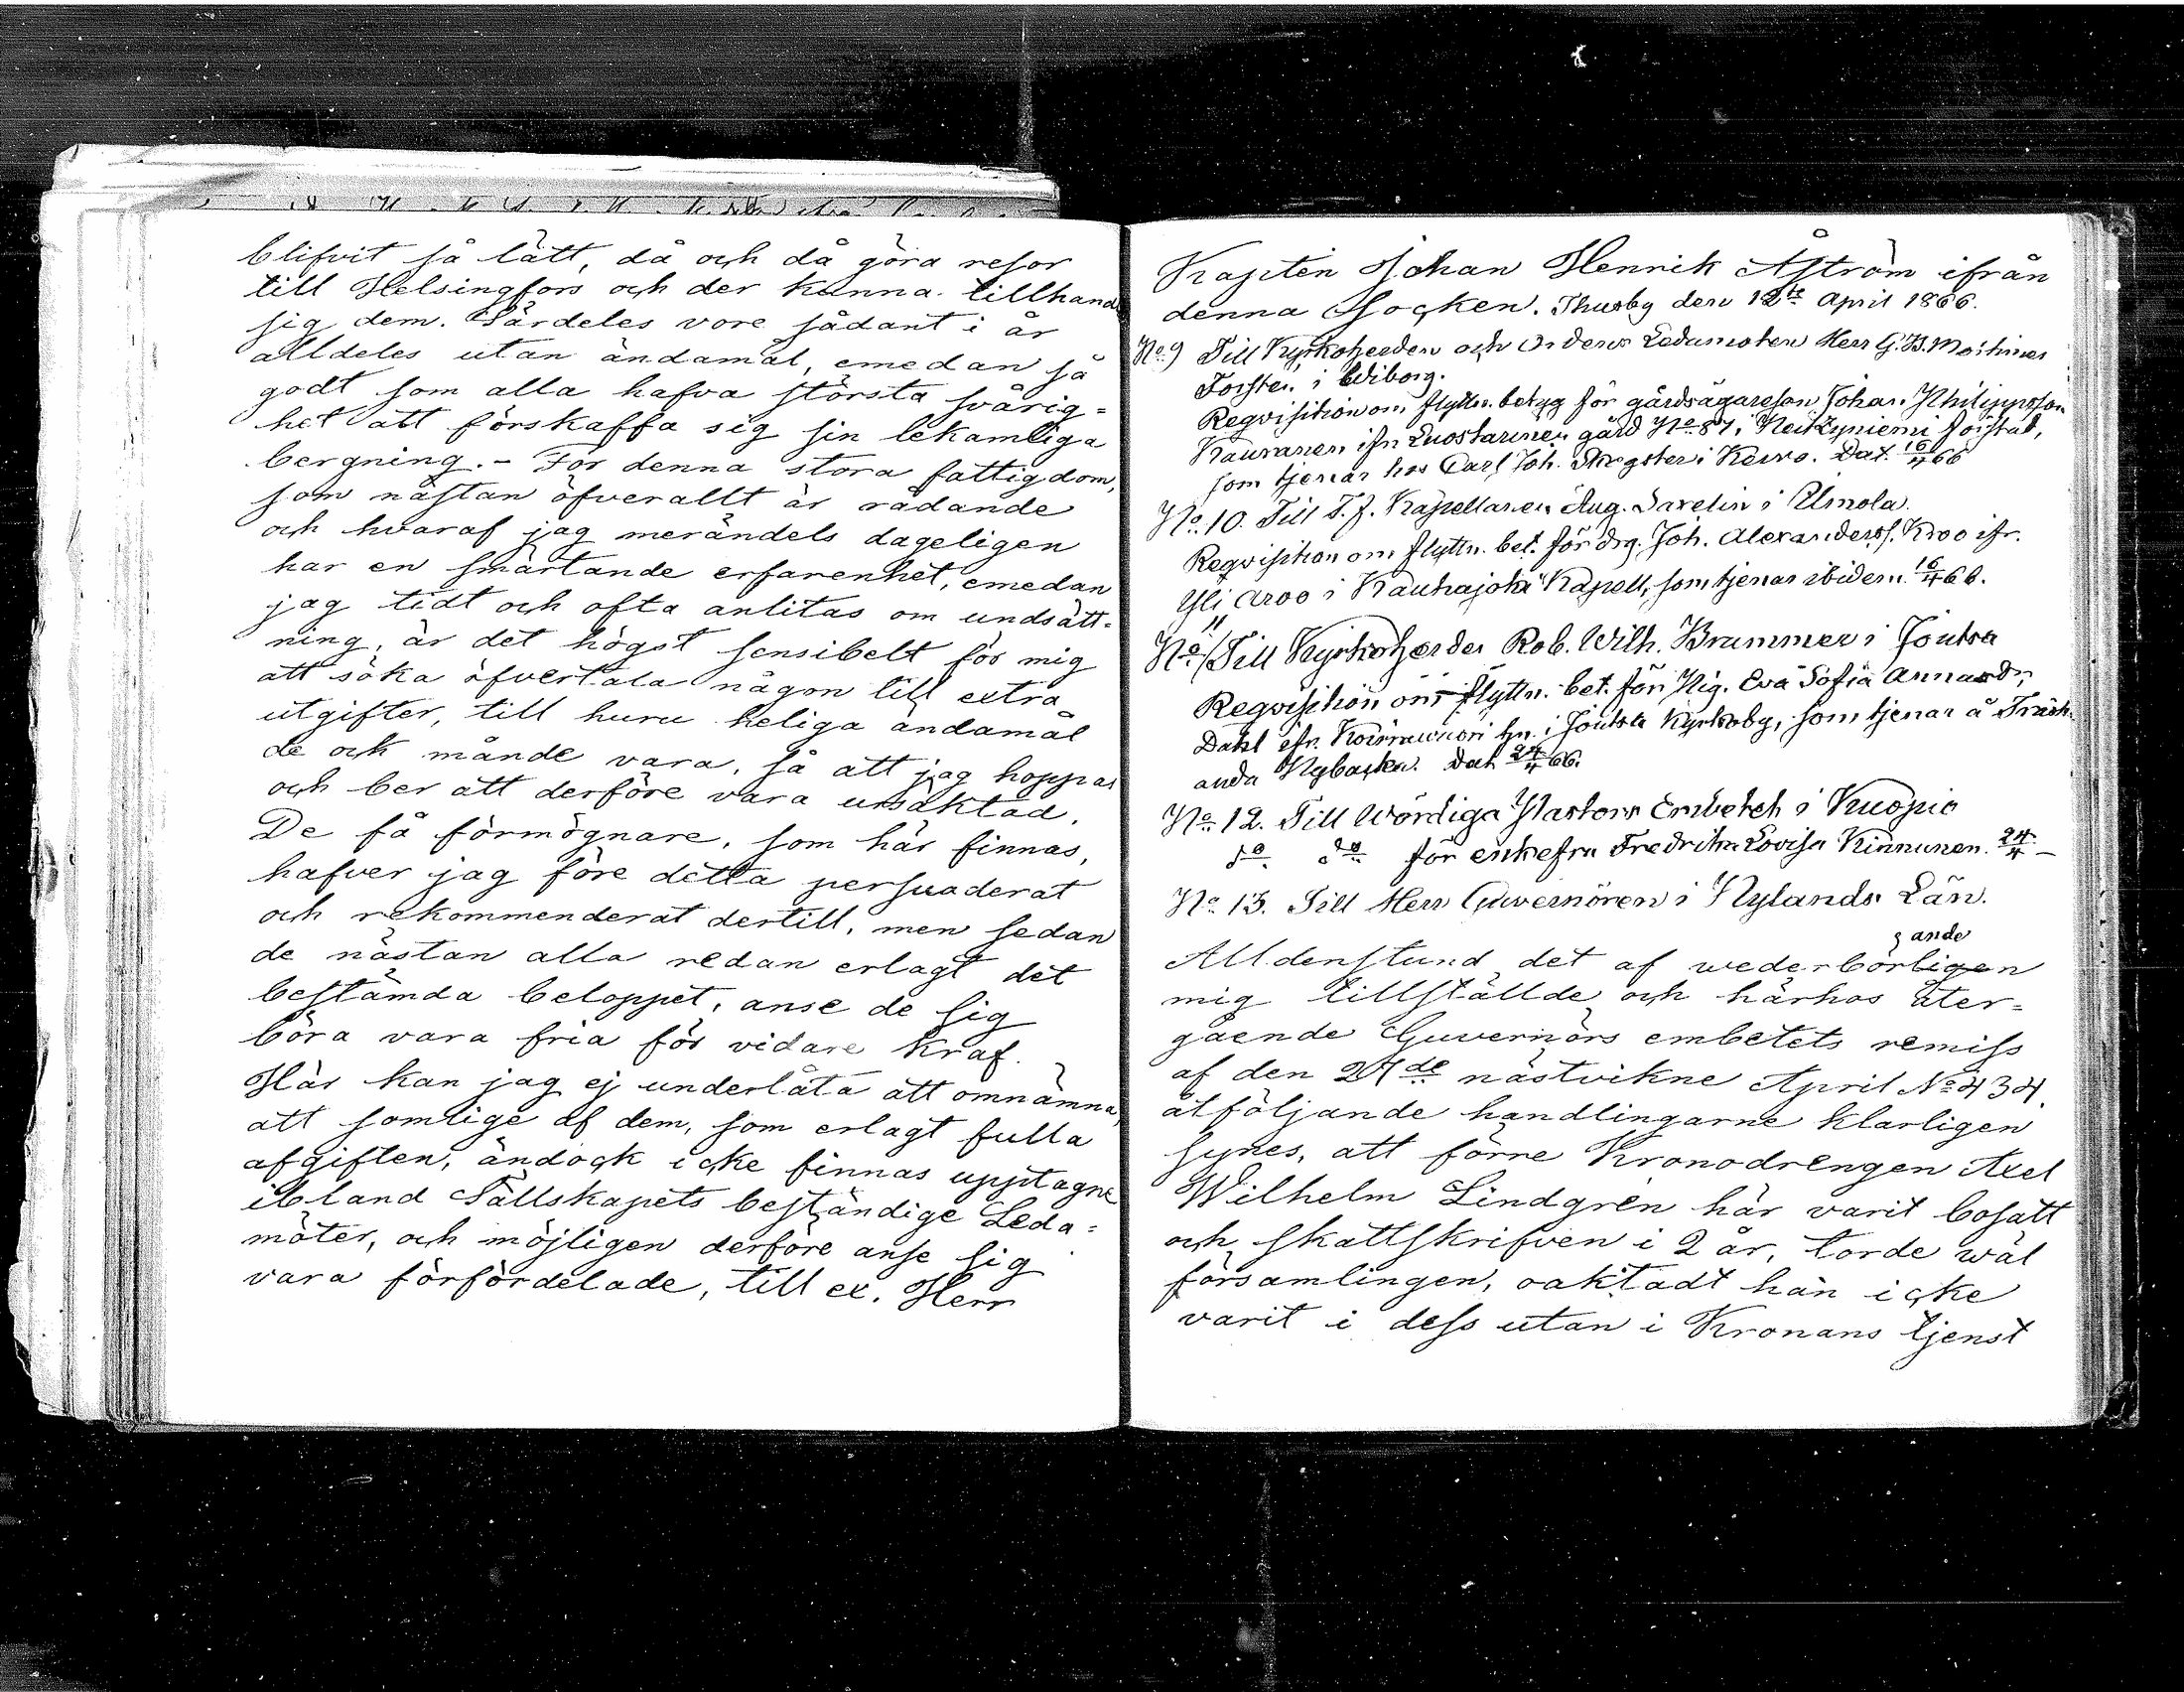 blifvit så lätt, då och då göra resor
till Helsingfors och der kunna tillhand
sig dem. Särdeles vore sådant i år
alldeles utan ändamål, emedan så
godt som alla hafva största svårig=
het att förskaffa sig sin lekamliga
bergning. - For denna stora fattigdom,
som nästan öfverallt är rådande
och hvaraf jag merändels dageligen
har en smärtande erfarenhet, emedan
jag tidt och ofta anlitas om undsätt=
ning, är det högst sensibelt för mig
att söka öfvertala någon till extra
utgifter, till huru heliga ändamål
de ock månde vara, så att jag hoppas
och ber att derföre vara ursäktad.
De få förmögnare, som här finnas,
hafver jag före detta persuaderat
och rekommenderat dertill, men sedan
de nästan alla redan erlagt det
bestämda beloppet, anse de sig
böra vara fria för vidare kraf.
Här kan jag ej underlåta att omnämna,
att somlige af dem, som erlagt fulla
afgiften, ändock icke finnas upptagne
ibland Sällskapets beständige Leda=
möter, och möjligen derföre anse sig
vara förfördelade, till ex. Herr
Kapten Johan Henrik Åström ifrån
denna Socken. Thusby den 12te April 1866.
No 9 Till Kyrkoherden och Ordens Ledamoten Herr G. B.
i Wiborg.
Reqvisition om flyttn. betyg för gårdsägaresson Johan Philippsson
Kauranen ifrn Luostarinen gård No 87, Neitzyniemi förstad,
som tjenar hos Carl Joh. i Kervo. Dat. 16/4 66
No 10. Till T. f. Kapellanen Aug. i Ilmola.
Reqvisition om flyttn. bet. för drg. Joh. Alexanderss. Kroo ifr.
Yli Aroo i Kauhajoki Kapell, som tjenar ibidem. 16/4 66.
No 11 Till Kyrkoherden Rob. Wilh. Brummer i Joutsa
Reqvisition om flyttn. bet. för Pig. Eva Sofia
Dahl ifr. hn. i Joutsa Kyrkoby, som tjenar å Träsk=
anda Nybacka. Dat 24/4 66.
No 12. Till Wördiga Pastors Embetet i Kuopio
do do för enkefru Fredrika Lovisa Kinnunen. 24/4 -
No 13. Till Herr Guvernören i Nylands Län.
ande
Alldenstund det af wederbörligen
mig tillställde och härhos åter=
gående Guvernörs embetets remiss
af den 27de nästvikne April No 434.
åtföljande handlingarne klarligen
synes, att förre Kronodrengen Axel
Wilhelm Lindgrén här varit bosatt
och skattskrifven i 2 år, torde wäl
församlingen, oaktadt han icke
varit i dess utan i Kronans tjenst